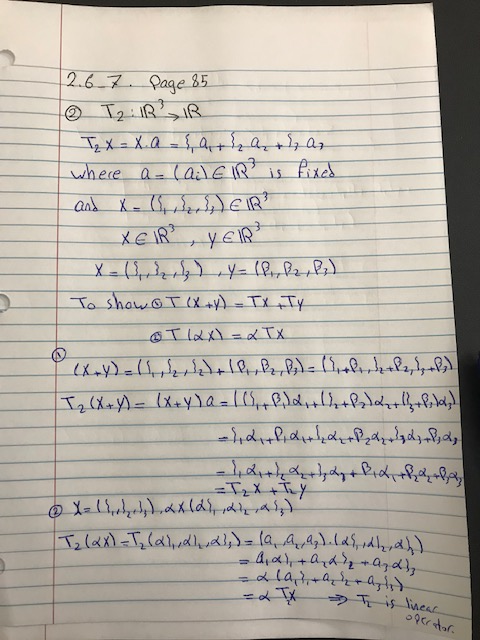 2.6-7. Page 85
② T₂ : ℝ³ → ℝ
T₂ x = x.a = ξ₁ a₁ + ξ₂ a₂ + ξ₃ a₃
where a = (aᵢ) ∈ ℝ³ is fixed
and x = (ξ₁, ξ₂, ξ₃) ∈ ℝ³
x ∈ ℝ³ , y ∈ ℝ³
x = (ξ₁, ξ₂, ξ₃) , y = (β₁, β₂, β₃)
To show ① T(x+y) = Tx + Ty
② T(αx) = α Tx
①
(x+y) = (ξ₁, ξ₂, ξ₃) + (β₁, β₂, β₃) = (ξ₁+β₁, ξ₂+β₂, ξ₃+β₃)
T₂(x+y) = (x+y)a = ((ξ₁+β₁)α₁ + (ξ₂+β₂)α₂ + (ξ₃+β₃)α₃)
= ξ₁α₁ + β₁α₁ + ξ₂α₂ + β₂α₂ + ξ₃α₃ + β₃α₃
= ξ₁α₁ + ξ₂α₂ + ξ₃α₃ + β₁α₁ + β₂α₂ + β₃α₃
= T₂x + T₂y
② x = (ξ₁, ξ₂, ξ₃) , αx (αξ₁, αξ₂, αξ₃)
T₂(αx) = T₂(αξ₁, αξ₂, αξ₃) = (a₁, a₂, a₃) . (αξ₁, αξ₂, αξ₃)
= a₁αξ₁ + a₂αξ₂ + a₃αξ₃
= α(a₁ξ₁ + a₂ξ₂ + a₃ξ₃)
= α T₂x ⟹ T₂ is linear
operator.